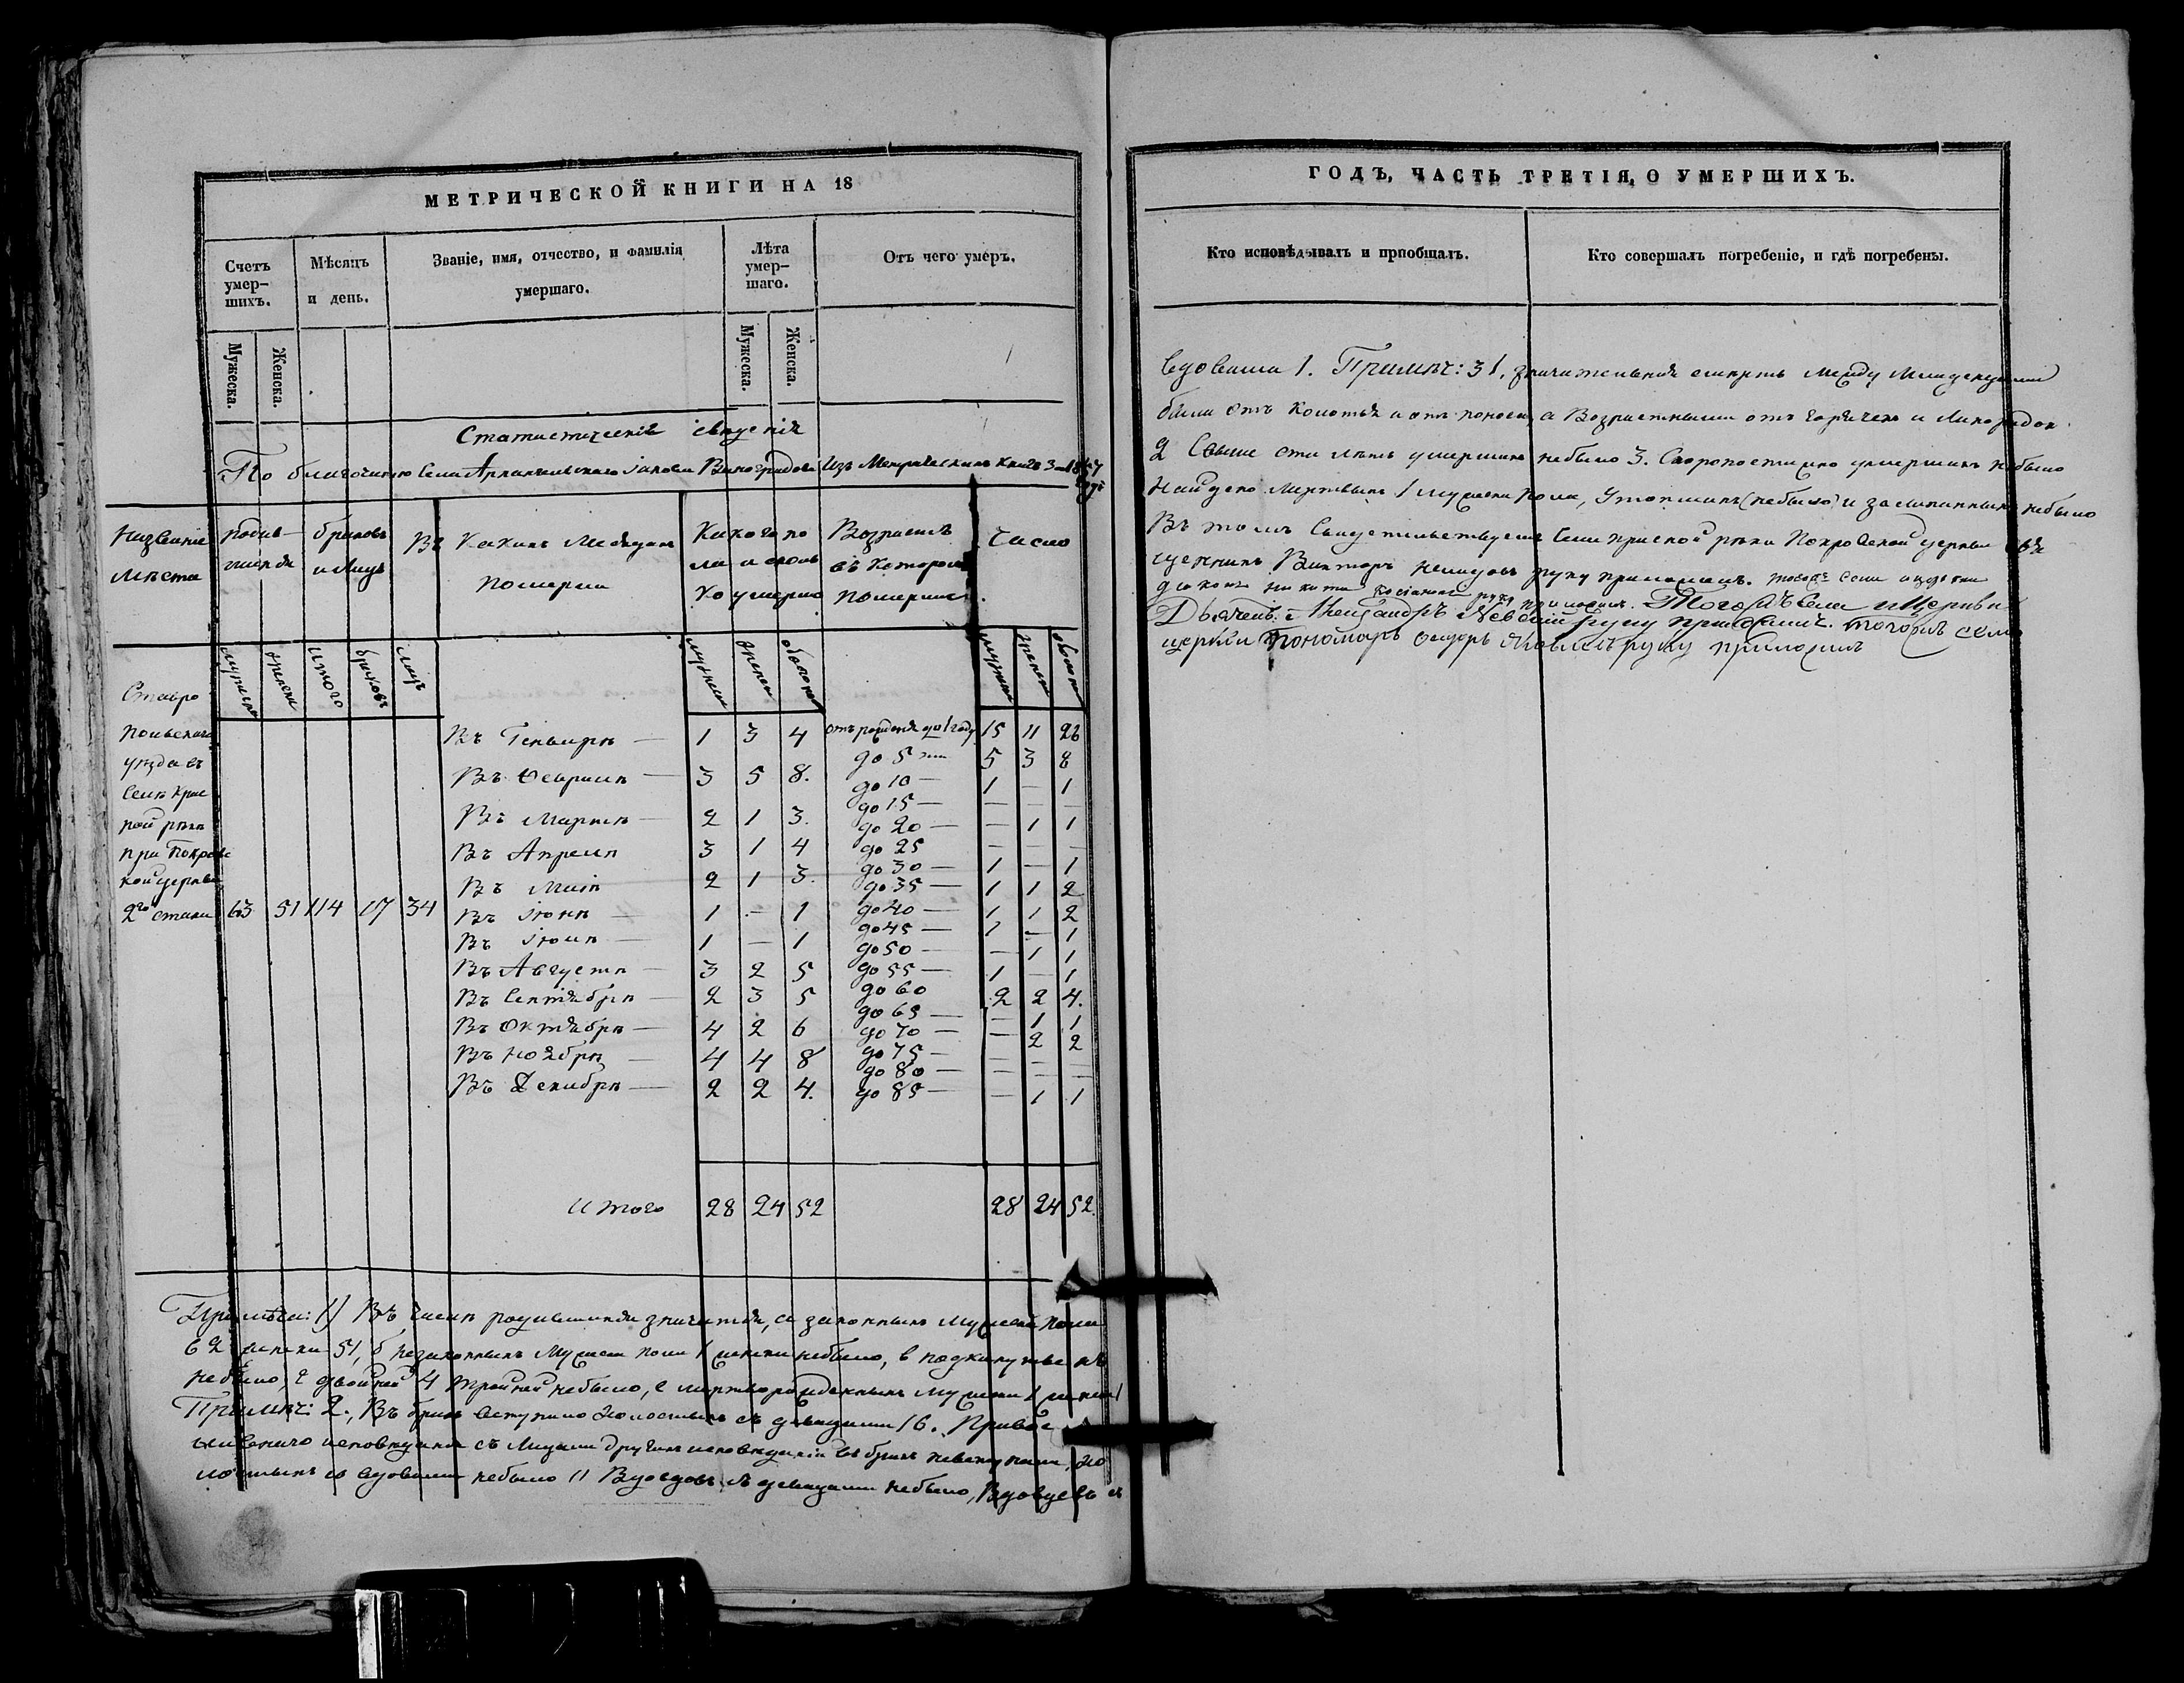 МЕТРИЧЕСКОЙ КНИГИ НА 18
Счетъ умер-шихъ.
Мѣсяцъ и день.
Званіе, имя, отчество, и фамилія умершаго.
Лѣта умер-шаго.
Отъ чего умеръ.
Мужеска.
Женска.
Мужеска.
Женска.
Статистическія свѣденія
По благочинію Села Архангельскаго Іакова Виноградова Изъ Метрическихъ Книгъ За
Названіе мѣста
родив-шихся
браковъ и лицъ
Въ Какихъ Месяцахъ померли
Какого по ла и сколь ко умерло
Возрастъ въ котором померли
Число
мужеска женска Итого браковъ лицъ
мужеска женска обоего
мужеска женска обоего
Ставро
польскаго
уѣзда въ
Селѣ Крас
ной рѣкѣ
при Покровс
кой церкви
2го стана 63 51 114 17 34
Въ Генварѣ — 1 3 4 отъ рожденія до 1 году 15 11 26
до 5 5 3 8
Въ Февралѣ — 3 5 8. до 10 — 1 — 1
до 15 — — — —
Въ Мартѣ — 2 1 3. до 20 — — 1 1
Въ Апрелѣ 3 1 4 до 25 — — —
до 30 — 1 — 1
Въ Маіѣ 2 1 3. до 35 — 1 1 2
Въ Іюнѣ — 1 — 1 до 40 — 1 1 2
до 45 — 1 — 1
Въ Іюлѣ — 1 — 1 до 50 — — 1 1
Въ Августѣ — 3 2 5 до 55 — 1 — 1
Въ Сентябрѣ — 2 3 5 до 60 2 2 4.
до 65 — — 1 1
Въ Октябрѣ — 4 2 6 до 70 — — 2 2
Въ Ноябрѣ — 4 4 8 до 75 — — — —
до 80 — — — —
Въ Декабрѣ — 2 2 4. до 85 — — 1 1
Итого 28 24 52 28 24 52.
Примѣча: 1) Въ числѣ родившихся значится, а законныхъ мужеска пола
62 женска 51, б незаконныхъ Мужеска пола 1 женска небыло, в подкинутыхъ
небыло, г двойней 4 тройней небыло, мертворожденныхъ мужеска 1 женска 1
Примѣч: 2., Въ бракъ Вступило Холостыхъ съ девицами 16. Правос
лавнаго исповеданія съ Лицами другихъ исповеданій въ бракъ невступали, Хо
лостыхъ со вдовами небыло 11 Вдовцовъ съ девицами небыло, Вдовцевъ съ
ГОДЪ, ЧАСТЬ ТРЕТІЯ, О УМЕРШИХЪ.
Кто исповѣдывалъ и пріобщалъ.
Кто совершалъ погребеніе, и гдѣ погребены.
вдовами 1. Примѣч: 3 1. значительная смерть Между Младенцами
была отъ Колотья и отъ поноса, а Возрастными отъ Горячекъ и Лихорадок
2 Свыше ста лѣтъ умершихъ небыло 3. Скоропостижно умершихъ небыло
Найдено Мертвыхъ 1 мужеска пола, Утопшихъ (небыло) и замерзшихъ небыло
Въ томъ Свидетельствуемъ Села Красной рѣки Покровской церкви Свя
щенникъ Викторъ руку приложилъ. тогожъ Села и церкви
діаконъ Никита руку приложилъ. Тогожъ Села и Церкви
Дьячекъ Александръ Невскій руку приложилъ. тогожъ села
церкви пономарь Федоръ руку приложилъ